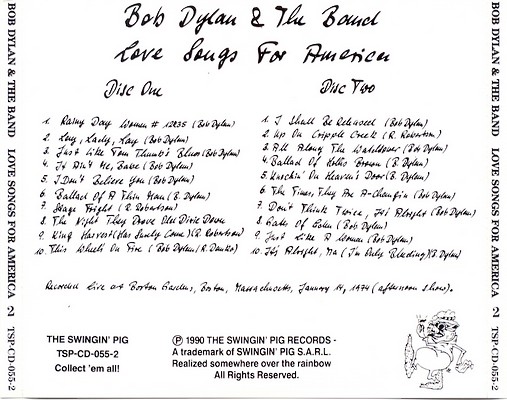 Bob Dylan & The Band
Love Songs For America
Disc One
1. Rainy Day Women # 12&35 (Bob Dylan)
2. Lay, Lady, Lay (Bob Dylan)
3. Just Like Tom Thumb's Blues (Bob Dylan)
4. It Ain't Me, Babe (Bob Dylan)
5. I Don't Believe You (Bob Dylan)
6. Ballad Of A Thin Man (B. Dylan)
7. Stage Fright (R. Robertson)
8. The Night They Drove Old Dixie Down
9. King Harvest (Has Surely Come) (R. Robertson)
10. This Wheel's On Fire (Bob Dylan/R. Danko)
Disc Two
1. I Shall Be Released (Bob Dylan)
2. Up On Cripple Creek (R. Robertson)
3. All Along The Watchtower (Bob Dylan)
4. Ballad Of Hollis Brown (B. Dylan)
5. Knockin' On Heaven's Door (B. Dylan)
6. The Times They Are A-Changin (Bob Dylan)
7. Don't Think Twice, It's Alright (Bob Dylan)
8. Gates Of Eden (Bob Dylan)
9. Just Like A Woman (Bob Dylan)
10. It's Alright, Ma (I'm Only Bleeding) (B. Dylan)
Recorded Live at Boston Gardens, Boston, Massachusetts, January 14, 1974 (afternoon show).
THE SWINGIN' PIG
TSP-CD-055-2
Collect 'em all!
℗ 1990 THE SWINGIN' PIG RECORDS -
A trademark of SWINGIN' PIG S.A.R.L.
Realized somewhere over the rainbow
All Rights Reserved.
BOB DYLAN & THE BAND LOVE SONGS FOR AMERICA 2 TSP-CD-055-2
BOB DYLAN & THE BAND LOVE SONGS FOR AMERICA 2 TSP-CD-055-2